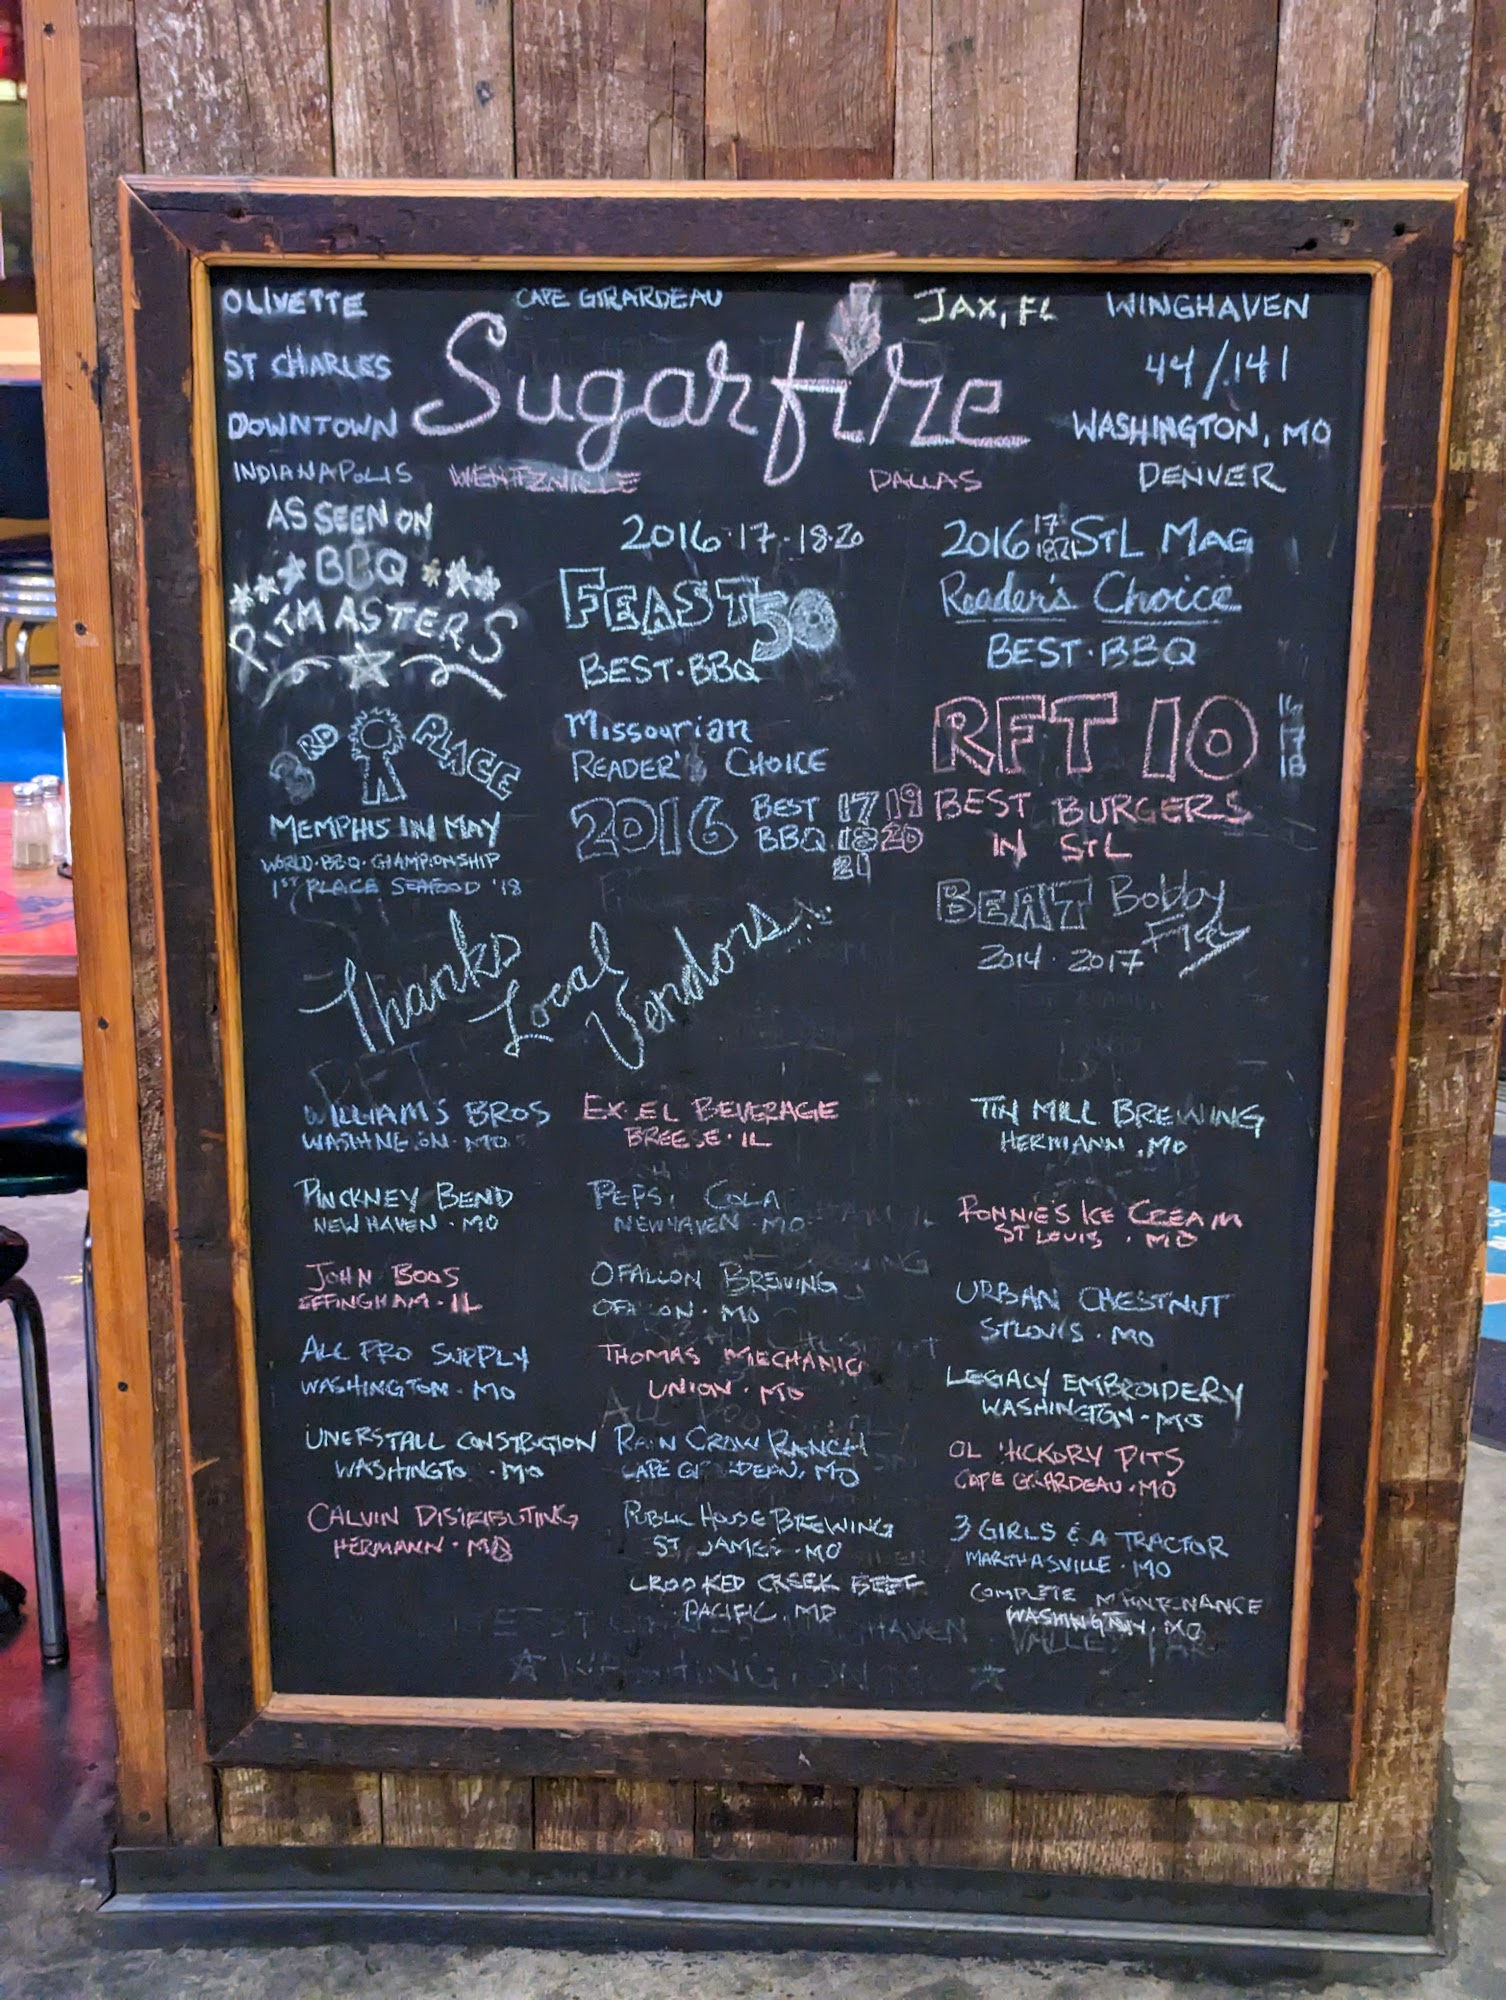 OLIVETTE
CAPE GIRARDEAU
JAX, FL
WINGHAVEN
ST CHARLES
Sugarfire
44/141
DOWNTOWN
WASHINGTON, MO
INDIANAPOLIS
WENTZVILLE
DALLAS
DENVER
AS SEEN ON
BBQ
PITMASTERS
3RD PLACE
MEMPHIS IN MAY
WORLD·BBQ·CHAMPIONSHIP
1ST PLACE SEAFOOD '18
2016·17·18·20
FEAST 50
BEST·BBQ
Missourian
READER'S CHOICE
2016 BEST BBQ 17 19
18 20
21
2016 17 18 21 STL MAG
Reader's Choice
BEST·BBQ
RFT 10 16 17 18
BEST BURGERS
IN STL
BEAT Bobby
Flay
2014·2017
Thanks
Local
Vendors...
WILLIAMS BROS
WASHINGTON·MO
PINCKNEY BEND
NEW HAVEN·MO
JOHN BOOS
EFFINGHAM·IL
ALL PRO SUPPLY
WASHINGTON·MO
UNERSTALL CONSTRUCTION
WASHINGTO ·MO
CALVIN DISTRIBUTING
HERMANN·MO
EX·EL BEVERAGE
BREESE·IL
PEPSI COLA
NEWHAVEN·MO
OFALLON BREWING
OFALLON·MO
THOMAS MECHANIC
UNION·MO
RAIN CROW RANCH
CAPE GIRARDEAU, MO
PUBLIC HOUSE BREWING
ST JAMES·MO
CROOKED CREEK BEEF
PACIFIC, MO
TIN MILL BREWING
HERMANN, MO
RONNIE'S ICE CREAM
ST LOUIS · MO
URBAN CHESTNUT
ST LOUIS·MO
LEGACY EMBROIDERY
WASHINGTON·MO
OL 'HICKORY PITS
CAPE GIRARDEAU·MO
3 GIRLS & A TRACTOR
MARTHASVILLE·MO
COMPLETE MAINTENANCE
WASHINGTON, MO